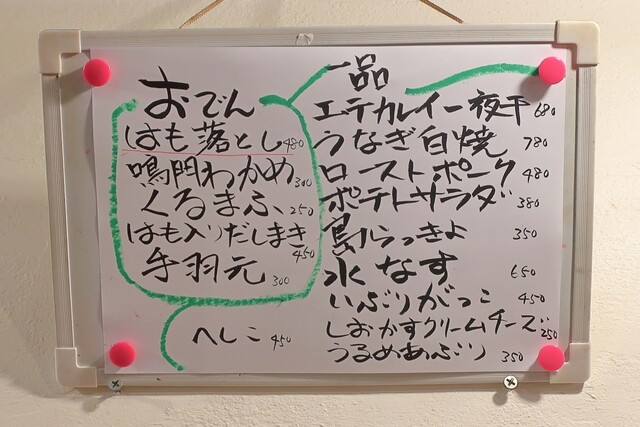 おでん
はも落とし 480
鳴門わかめ 300
くるまふ 250
はも入りだしまき 450
手羽元 300
へしこ 450
一品
エテカレイ一夜干 680
うなぎ白焼 780
ローストポーク 480
ポテトサラダ 380
島らっきょ 350
水なす 650
いぶりがっこ 450
しおかすクリームチーズ 250
うるめあぶり 350